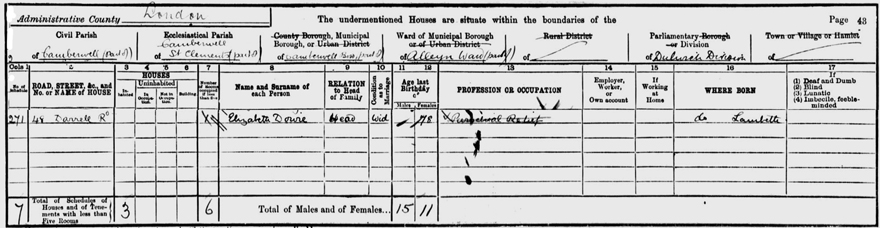 Administrative County London The undermentioned Houses are situate within the boundaries of the Page 43
Civil Parish
of Camberwell (part of)
Ecclesiastical Parish
Camberwell
of St Clement (part of)
County Borough, Municipal
Borough, or Urban District
of Camberwell
Ward of Municipal Borough
or of Urban District
of Alleyn Ward (part of)
Rural District
of
Parliamentary Borough
or Division
of Dulwich Division
Town or Village or Hamlet
of
Cols 1 2 3 4 5 6 7 8 9 10 11 12 13 14 15 16 17
No. of Schedule
ROAD, STREET, &c., and
No. or NAME of HOUSE
HOUSES
Inhabited
Uninhabited
In Occupation
Not in Occupation
Building
Number of Rooms occupied if less than five
Name and Surname of
each Person
RELATION
to Head
of Family
Condition as to Marriage
Age last
Birthday
of
Males Females
PROFESSION OR OCCUPATION
Employer,
Worker,
or
Own account
If
Working
at
Home
WHERE BORN
If
(1) Deaf and Dumb
(2) Blind
(3) Lunatic
(4) Imbecile, feeble-
minded
271 48 Darrell Rd Elizabeth Dowie Head Wid 78 Parochial Relief do Lambeth
7 Total of Schedules of
Houses and of Tene-
ments with less than
Five Rooms 3 6 Total of Males and of Females... 15 11